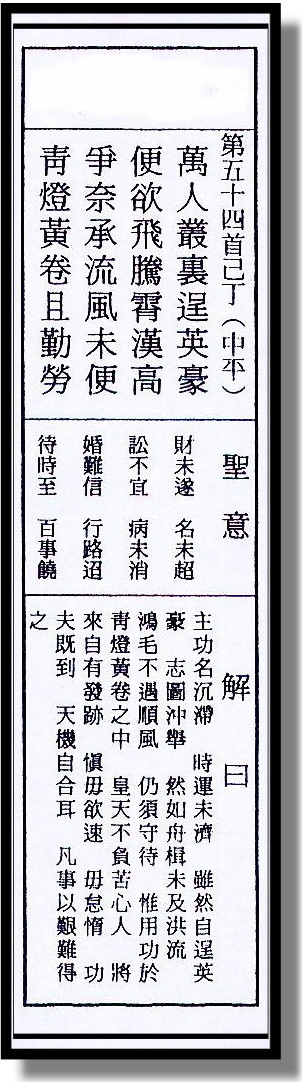 第五十四首己丁（中平）
萬人叢裏逞英豪
便欲飛騰霄漢高
爭奈承流風未便
靑燈黃卷且勤勞
聖意
財未遂　名未超
訟不宜　病未消
婚難信　行路迢
待時至　百事饒
解曰
主功名沉滯　時運未濟　雖然自逞英
豪　志圖沖舉　然如舟楫未及洪流
鴻毛不遇順風　仍須守待　惟用功於
靑燈黃卷之中　皇天不負苦心人　將
來自有發跡　愼毋欲速　毋怠惰　功
夫既到　天機自合耳　凡事以艱難得
之